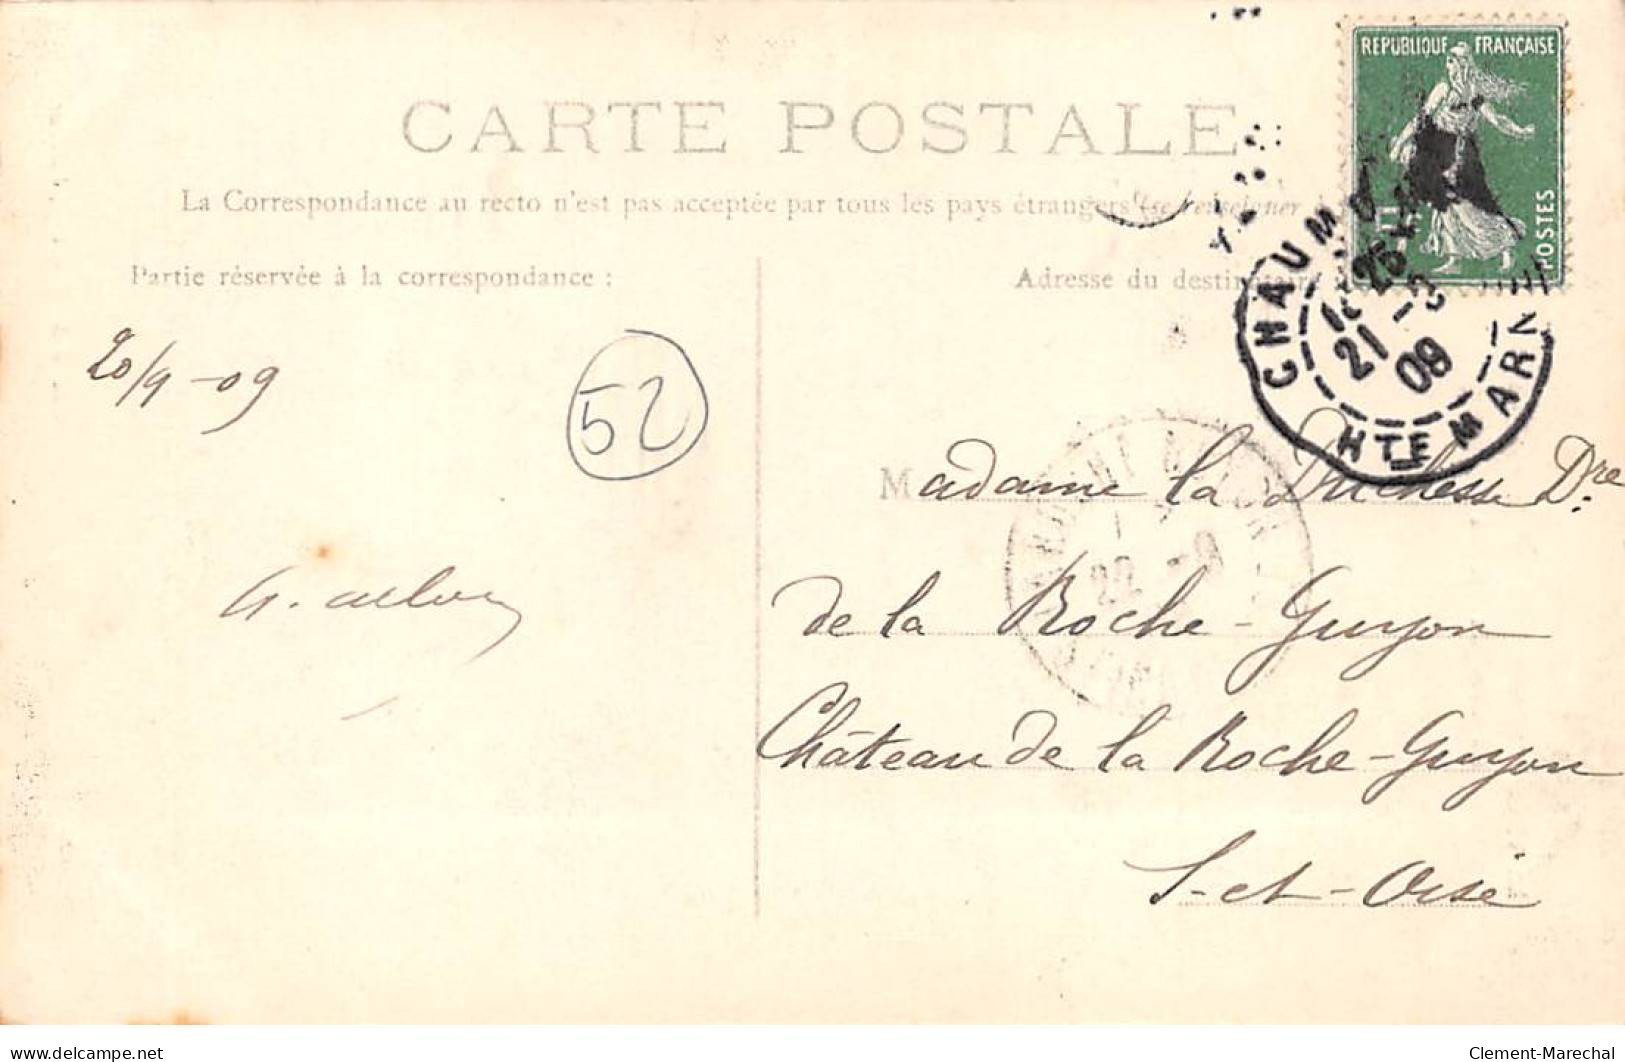 REPUBLIQUE FRANÇAISE
POSTES
CARTE POSTALE
La Correspondance au recto n'est pas acceptée par tous les pays étrangers (se renseigner
Partie réservée à la correspondance :
Adresse du destinataire
CHAUMONT
21 -9
09
HTE MARNE
20/9-09
52
Madame la Duchesse Dre
de la Roche-Guyon
Château de la Roche-Guyon
S-et-Oise
22 -9
delcampe.net
Clement-Marechal